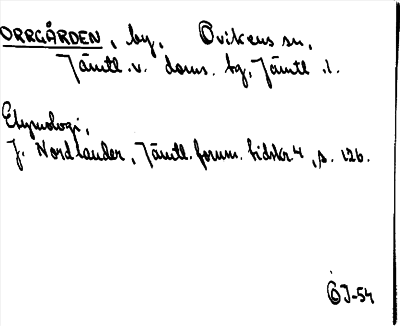 ORRGÅRDEN, by, Ovikens sn,
Jämtl. v. doms. hg, Jämtl. l.
Etymologi,
J. Nordlander, Jämtl. fornm. tidskr 4, s. 126.
ÖJ-54